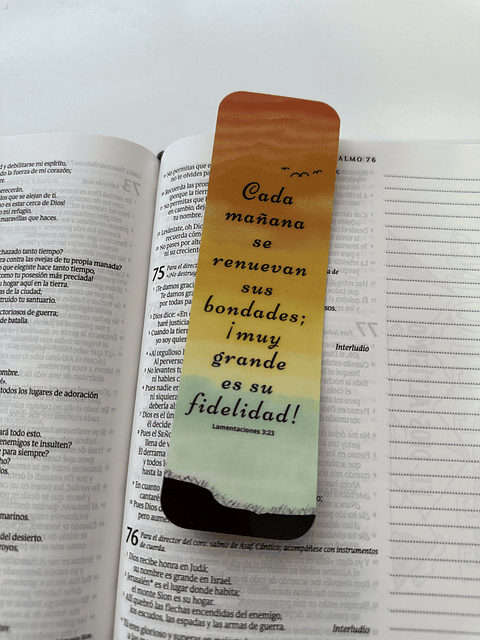 d y debilitarse mi espíritu,
do la fuerza de mi corazón;
re.
erecerán,
los que se alejan de ti.
o es estar cerca de Dios!
o mi refugio,
maravillas que haces.
chazado tanto tiempo?
ra contra las ovejas de tu propia manada?
o que elegiste hace tanto tiempo,
omo tu posesión más preciada!
u hogar aquí en la tierra.
as de la ciudad;
truido tu santuario.
ctoriosos de guerra;
de batalla.
ombre.
todos los lugares de adoración
ará todo esto.
enemigos te insulten?
para siempre?
ho?
marinos.
del desierto.
royos,
ALMO 76
No permitas que
no te olvides pa
Recuerda las pron
porque la tierra
No permitas que
en cambio, deja
tu nombre.
Levántate, oh Dio
recuerda cómo
No pases por alto
ni su crecient
75 Para el direct
«¡No destruy
¡Te damos gracia
Te damos gra
por todas pa
Dios dice: «En
haré justicia
Cuando la tierr
yo soy quien
Al orgulloso
Al perverso
No levantes tu
ni hables c
Pues nadie e
ni siquiera
debería al
Dios es el ún
él decide
Pues el SEÑO
llena de v
Él derrama
y todos l
hasta la
En cuanto
cantaré
Pues Dios d
pero aume
Interludio
Cada
mañana
se
renuevan
sus
bondades;
¡muy
grande
es su
fidelidad!
Lamentaciones 3:23
76 Para el director del coro: salmo de Asaf. Cántico; acompáñese con instrumentos
de cuerda.
1 Dios recibe honra en Judá;
su nombre es grande en Israel.
2 Jerusalén* es el lugar donde habita;
el monte Sion es su hogar.
3 Allí quebró las flechas encendidas del enemigo,
los escudos, las espadas y las armas de guerra.
Interludio
4 Tú eres glorioso y superas en